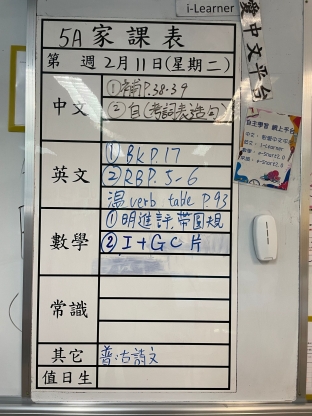 i-Learner
愛中文平台
5A 家課表
第 週 2月11日(星期二)
中文
①補P.38-39
②自(考詞表造句)
英文
①BK P.17
②RBP.5-6
温verb table P.93
數學
①明進評,帶圓規
②I+GC片
常識
其它
普:古詩文
值日生
自主學習 網上平台